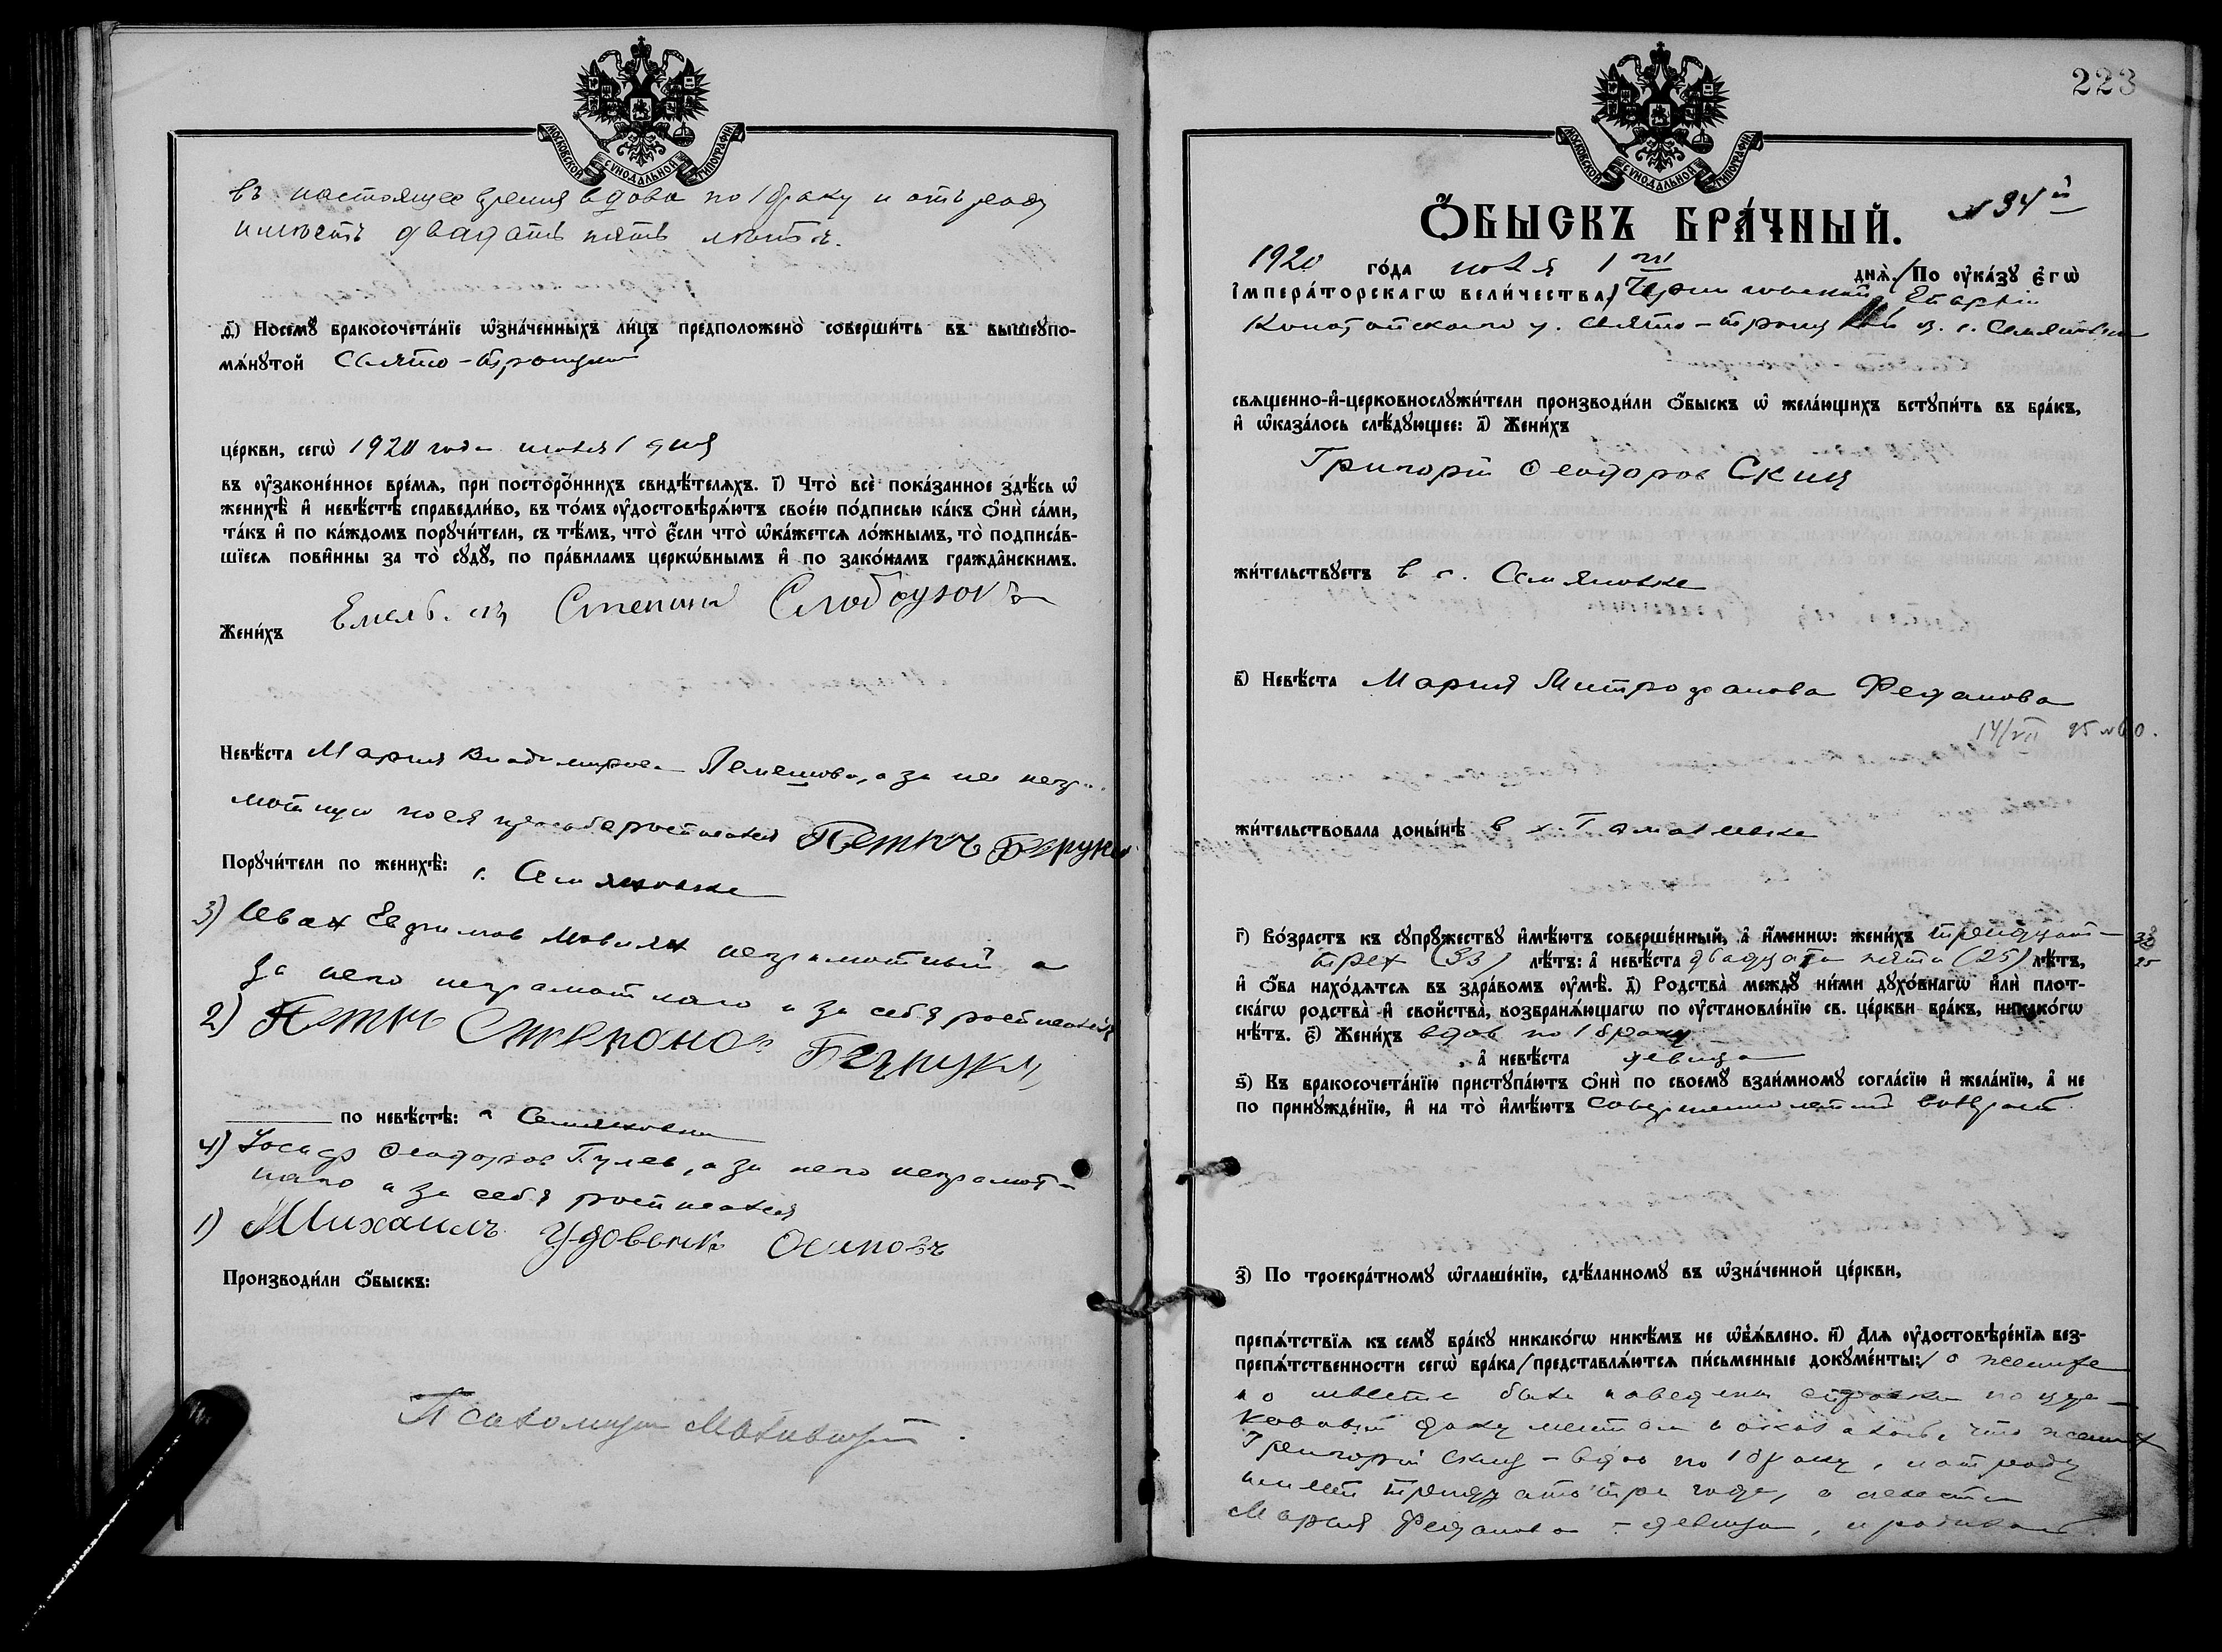 МОСКОВСКОЙ СѴНОДАЛЬНОЙ ТИПОГРАФІИ
въ настоящее время вдова по 1 браку и отъ роду
имѣетъ двадцать пять лѣтъ.
д҃) Посемꙋ̀ бракосочета́нїе ѡ҆зна́ченныхъ ли́цъ предположено̀ соверши́ть въ вышеꙋпо-
мѧ́нꙋтой Свято-Троицкой
це́ркви, сегѡ̀ 1920 года июля 1 дня
въ ᲂу҆зако́не́нное вре́мѧ, при посторо́ннихъ свидѣ́телѧхъ. і҃) Что̀ всѐ пока́занное здѣ́сь ѡ҆
женихѣ̀ и҆ невѣ́стѣ справедли́во, въ то́мъ ᲂу҆достовѣрѧ́ютъ свое́ю по́дписью ка́къ ѻ҆нѝ са́ми,
та́къ и҆ по ка́ждомъ порꙋчи́тели, съ тѣ́мъ, что̀ є҆́сли что̀ ѡ҆ка́жетсѧ ло́жнымъ, то̀ подписа́в-
шїесѧ пови́нны за то̀ сꙋдꙋ̀, по пра́виламъ церко́внымъ и҆ по зако́намъ гражда̂нскимъ.
Жени́хъ Степанов
Невѣ́ста Мария Владимирова Лемешова, а за нее негра-
мотную по ея просьбе росписался Петръ
Порꙋчи́тели по женихѣ̀: с. Семяновки
3) Иван Евфимов неграмотный а
за него неграмотного и за себя росписался
2) Петръ
по невѣ́стѣ: с Семяновки
4) Иосиф Феодоров Гулев, а за него неграмот-
ного и за себя росписался
1) Михаилъ Удовенко Осиповъ
Производи́ли ѻ҆́быскъ:
Псаломщик
223
МОСКОВСКОЙ СѴНОДАЛЬНОЙ ТИПОГРАФІИ
Ѻ҆́БЫСКЪ БРА́ЧНЫЙ. № 34й
1920 го́да июля 1 днѧ̀. По ᲂу҆ка́зꙋ є҆гѡ̀
і҆мпера́торскагѡ вели́чества, Черниговской Епархии
Конотопского у. Свято-Троицкой ц. с. Семяновки
свѧще́нно-и҆-церковнослꙋжи́тели производи́ли ѻ҆́быскъ ѡ҆ жела́ющихъ встꙋпи́ть въ бра́къ,
и҆ ѡ҆каза́лось слѣ́дꙋющее: а҃) Жени́хъ
Григорий Феодоров Скиц
жи́тельствꙋетъ в с. Семяновке
в҃) Невѣ́ста Мария Митрофанова Феданова
14/VII 95 № 60.
жи́тельствовала доны́нѣ в х.
г҃) Во́зрастъ къ сꙋпрꙋ́жествꙋ и҆мѣ́ютъ соверше́нный, а҆ и҆́меннѡ: жени́хъ тридцати- 33
трех (33) лѣ́тъ: а҆ невѣ́ста двадцати пяти (25) лѣ́тъ, 25
и҆ ѻ҆́ба нахо́дѧтсѧ въ здра́вомъ ᲂу҆мѣ̀. д҃) Родства̀ междꙋ̀ ни́ми дꙋхо́внагѡ и҆лѝ плот-
ска́гѡ родства̀ и҆ свойства̀, возбранѧ́ющагѡ по ᲂу҆становле́нїю св. це́ркви бра́къ, никако́гѡ
нѣ́тъ. є҃) Жени́хъ вдов по 1 браку
а҆ невѣ́ста девица
ѕ҃) Къ бракосочета́нїю пристꙋпа́ютъ ѻ҆нѝ по своемꙋ̀ взаи́мномꙋ согла́сїю и҆ жела́нїю, а҆ не
по принꙋжде́нїю, и҆ на то̀ и҆мѣ́ютъ совершеннолетний возраст.
з҃) По троекра́тномꙋ ѡ҆глаше́нїю, сдѣ́ланномꙋ въ ѡ҆зна́ченной це́ркви,
препѧ́тствїѧ къ семꙋ̀ бра́кꙋ никако́гѡ никѣ́мъ не ѡ҆б̾ѧ́влено. и҃) Длѧ ᲂу҆достовѣре́нїѧ без-
препѧ́тственности сегѡ̀ бра́ка представлѧ́ютсѧ пи́сьменные докꙋме́нты: о женихе
и о невесте были наведены справки по цер-
ковным документам и оказалось, что жених
Григорий Скиц - вдов по 1 браку, и от роду
имеет тридцать три года, а невеста
Мария Феданова - девица, и родилась